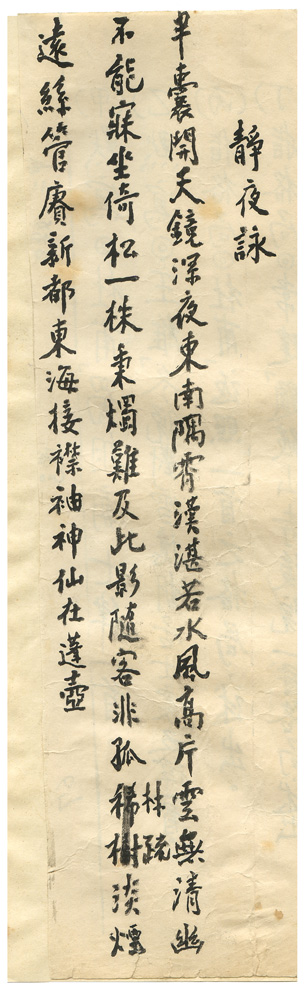 靜夜詠
半囊開天鏡深夜東南隅霄漢湛若水風高片雲無清幽
不能寐坐倚松一株秉燭難及此影隨客非孤稀樹淡煙
林疏
遠絲管賡新都東海接襟袖神仙在蓬壺